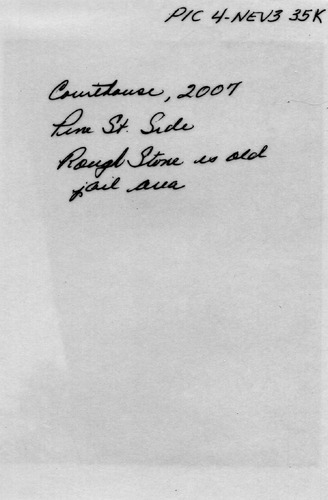 PIC 4-NEV3 35K
Courthouse, 2007
Pine St. Side
Rough Stone is old
jail area